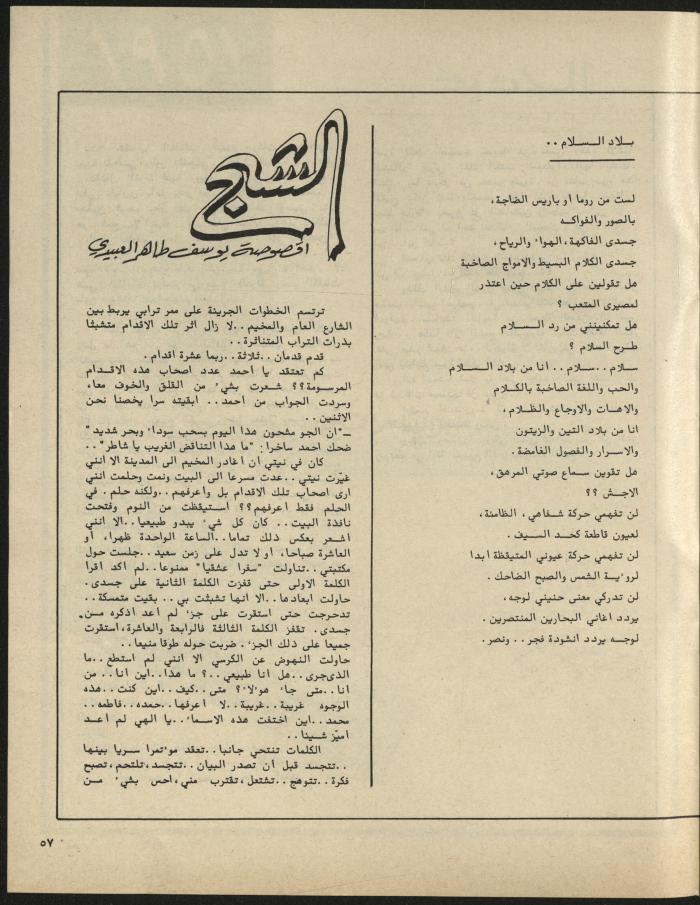 بلاد السلام ..
لست من روما او باريس الضاجة،
بالصور والفواكه
جسدى الفاكهة، الهواء والرياح،
جسدى الكلام البسيط والامواج الصاخبة
هل تقولين على الكلام حين اعتذر
لمصيرى المتعب ؟
هل تمكنينني من رد السلام
طرح السلام ؟
سلام .. سلام .. انا من بلاد السلام
والحب واللغة الصاخبة بالكلام
والاهات والاوجاع والظلام،
انا من بلاد التين والزيتون
والاسرار والفصول الغامضة .
هل تقوين سماع صوتي المرهق،
الاجش ؟؟
لن تفهمي حركة شفاهي، الظامئة،
لعيون قاطعة كحد السيف .
لن تفهمي حركة عيوني المتيقظة ابدا
لروءية الشمس والصبح الضاحك .
لن تدركي معنى حنيني لوجه،
يردد اغاني البحارين المنتصرين .
لوجه يردد انشودة فجر .. ونصر .
الشبح
اقصوصة يوسف طاهر العبيدي
ترتسم الخطوات الجريئة على ممر ترابي يربط بين
الشارع العام والمخيم ..لا زال اثر تلك الاقدام متشبثا
بذرات التراب المتناثرة ..
قدم قدمان ..ثلاثة ..ربما عشرة اقدام .
كم تعتقد يا احمد عدد اصحاب هذه الاقدام
المرسومة؟؟ شعرت بشيء من القلق والخوف معا،
وسردت الجواب من احمد .. ابقيته سرا يخصنا نحن
الاثنين ..
ــ"ان الجو مشحون هذا اليوم بسحب سوداء وبحر شديد"
ضحك احمد ساخرا: "ما هذا التناقض الغريب يا شاطر" ..
كان في نيتي ان اغادر المخيم الى المدينة الا انني
غيّرت نيتي ..عدت مسرعا الى البيت ونمت وحلمت انني
ارى اصحاب تلك الاقدام بل واعرفهم ..ولكنه حلم . في
الحلم فقط اعرفهم؟؟ استيقظت من النوم وفتحت
نافذة البيت .. كان كل شيء يبدو طبيعيا ..الا انني
اشعر بعكس ذلك تماما ..الساعة الواحدة ظهرا، أو
العاشرة صباحا، او لا تدل على زمن سعيد ..جلست حول
مكتبتي ..تناولت "سفرا عشقيا" ممنوعا ..لم اكد اقرا
الكلمة الاولى حتى قفزت الكلمة الثانية على جسدى .
حاولت ابعادها ..الا انها تشبثت بي .. بقيت متمسكة ..
تدحرجت حتى استقرت على جزء لم اعد اذكره من
جسدى . تقفز الكلمة الثالثة فالرابعة والعاشرة، استقرت
جميعا على ذلك الجزء . ضربت حوله طوقا منيعا ..
حاولت النهوض عن الكرسي الا انني لم استطع ..ما
الذى جرى ..هل انا طبيعي ..؟ ما هذا ..اين انا .. من
انا ..متى جاء هوءلاء؟ متى ..كيف ..اين كنت ..هذه
الوجوه غريبة ..غريبة ..لا اعرفها ..حمده ..فاطمه ..
محمد ..اين اختفت هذه الاسماء ..يا الهي لم اعد
اميّز شيئا ..
الكلمات تنتحي جانبا ..تعقد موءتمرا سريا بينها
..تتجسد قبل أن تصدر البيان ..تتجسد، تلتحم، تصبح
فكرة ..تتوهج ..تشتعل، تقترب مني، احس بشيء من
٥٧